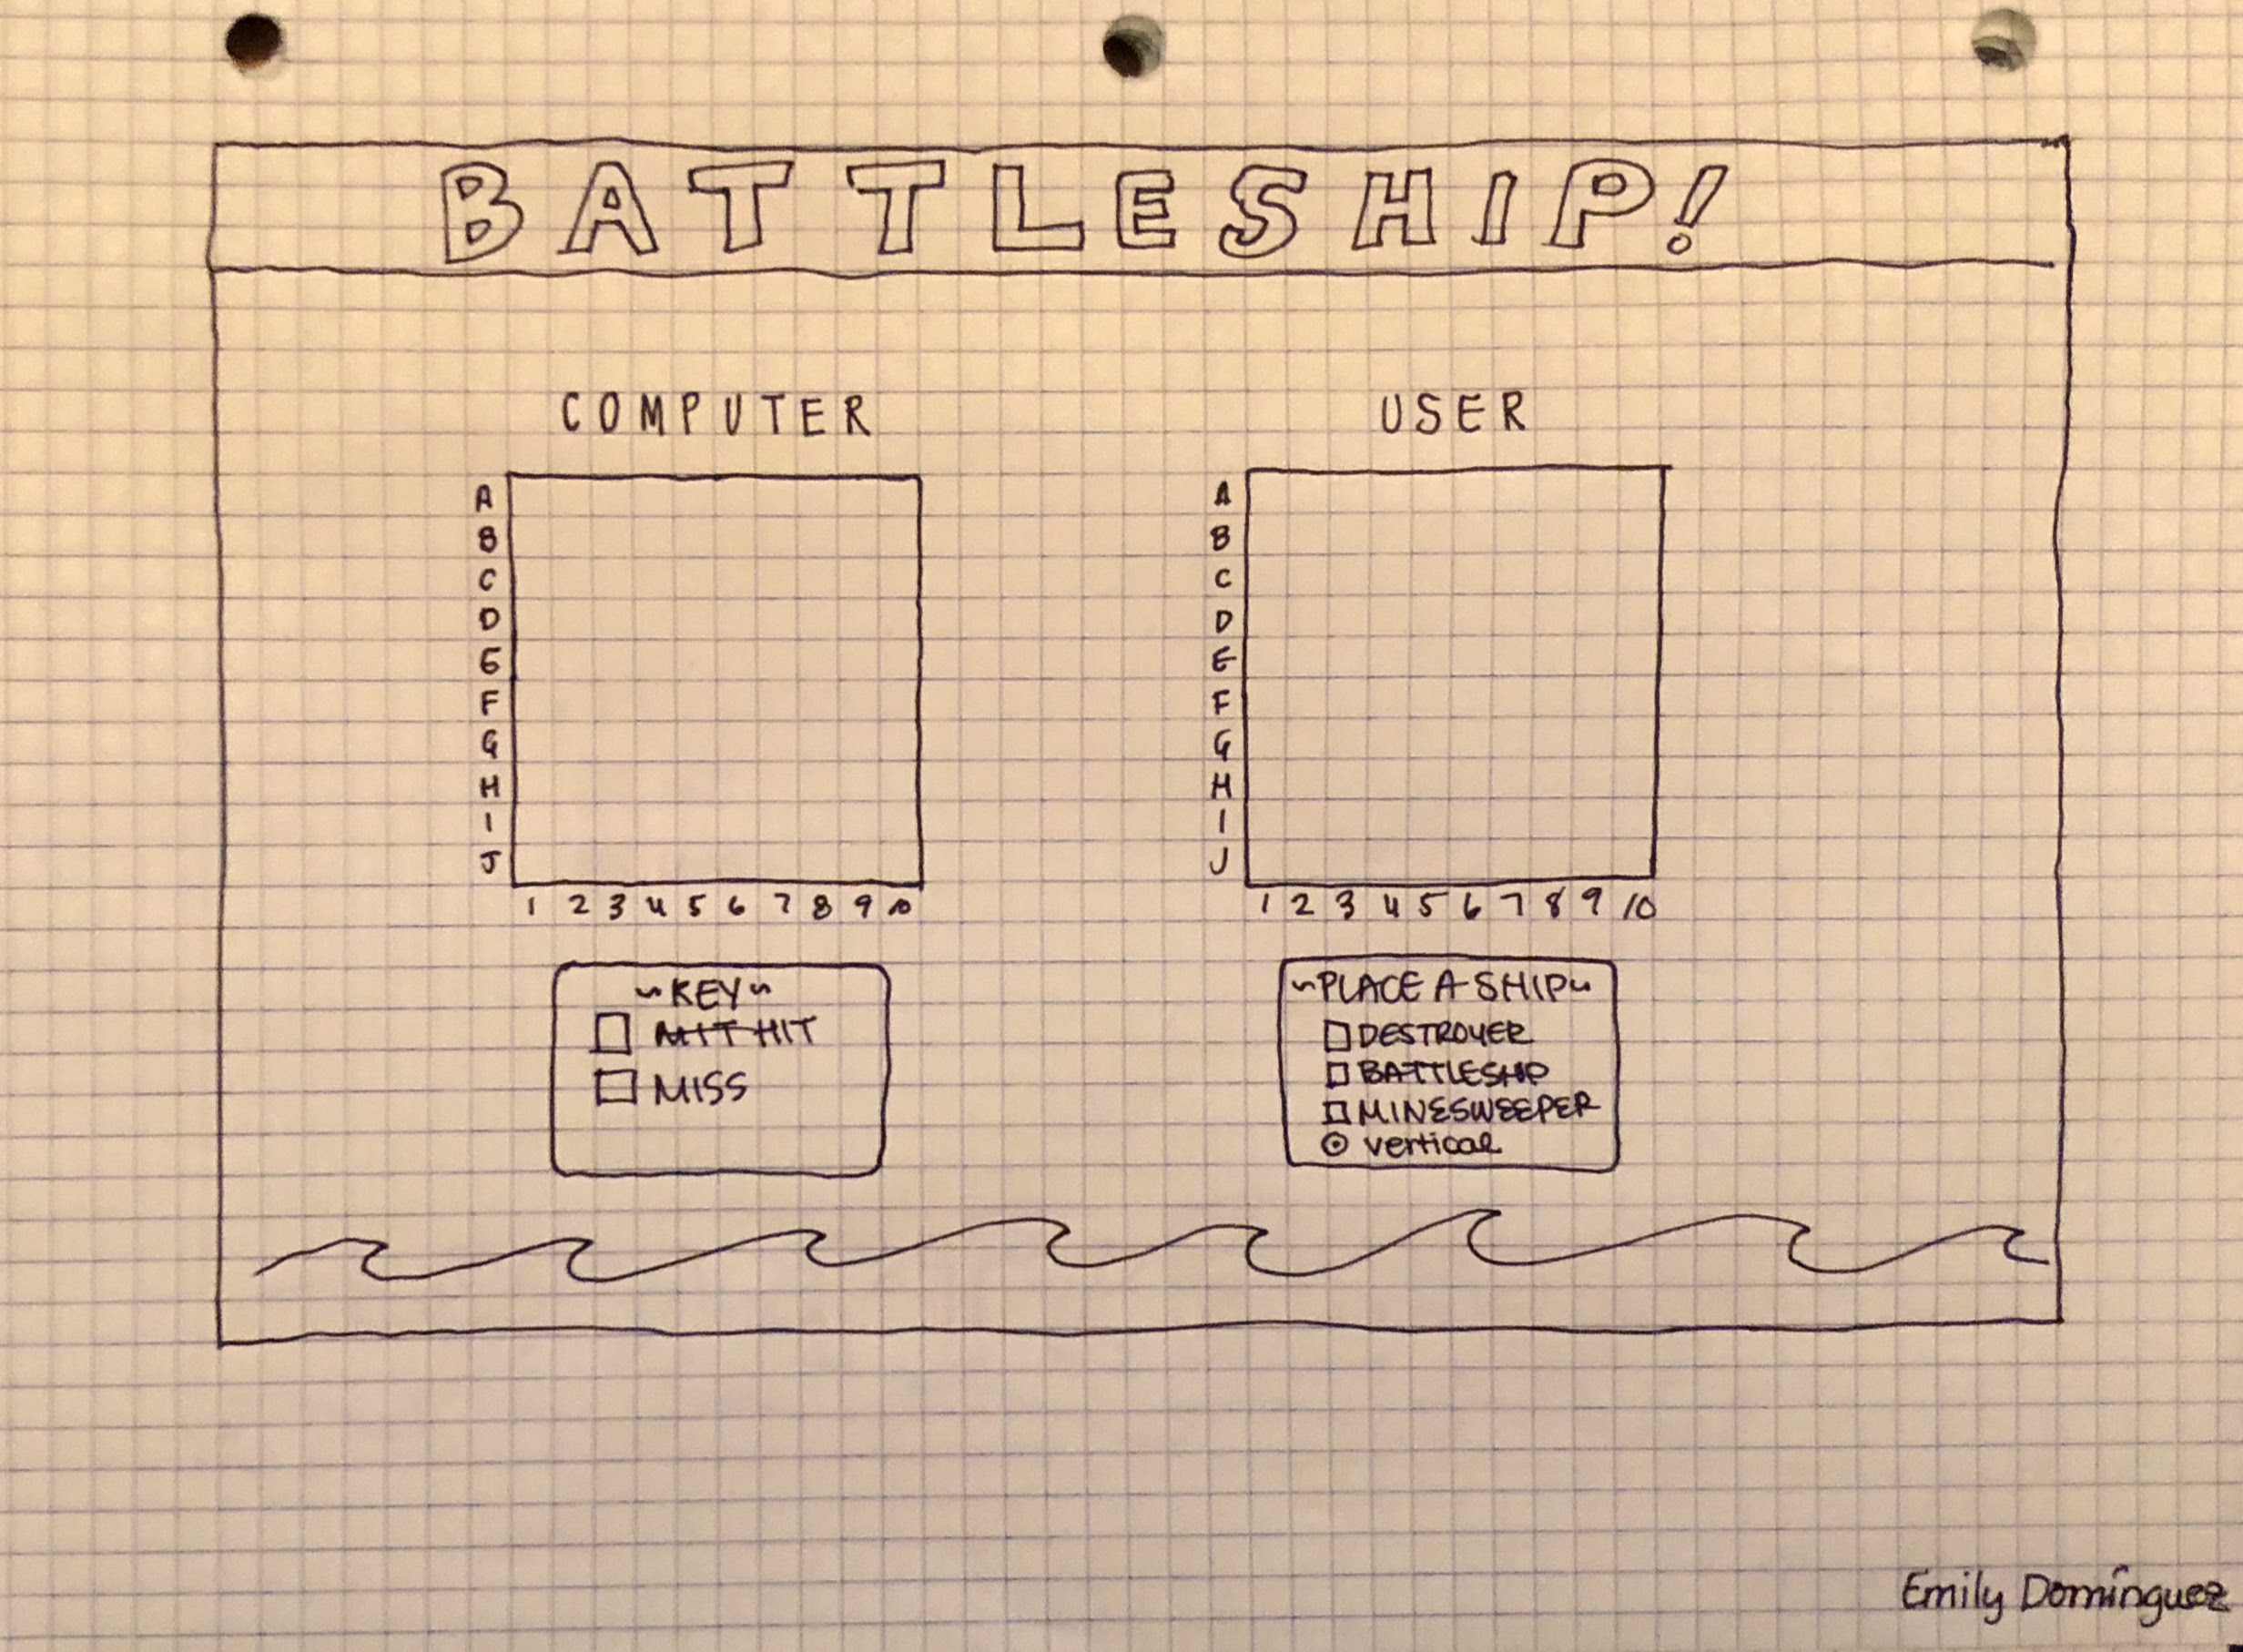 BATTLESHIP!
COMPUTER
A
B
C
D
E
F
G
H
I
J
1 2 3 4 5 6 7 8 9 10
USER
A
B
C
D
E
F
G
H
I
J
1 2 3 4 5 6 7 8 9 10
~KEY~
HIT
MISS
~PLACE A SHIP~
DESTROYER
BATTLESHIP
MINESWEEPER
vertical
Emily Domínguez